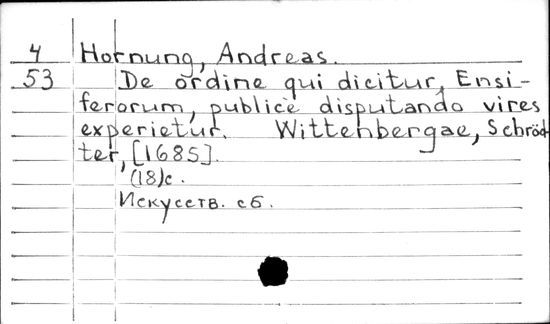 4 Hornung, Andreas.
53 De ordine qui dicitur, Ensi-
ferorum, publicè disputando vires
experietur. Wittenbergae, Schröd-
ter, [1685].
(18)c.
Искусств. сб.